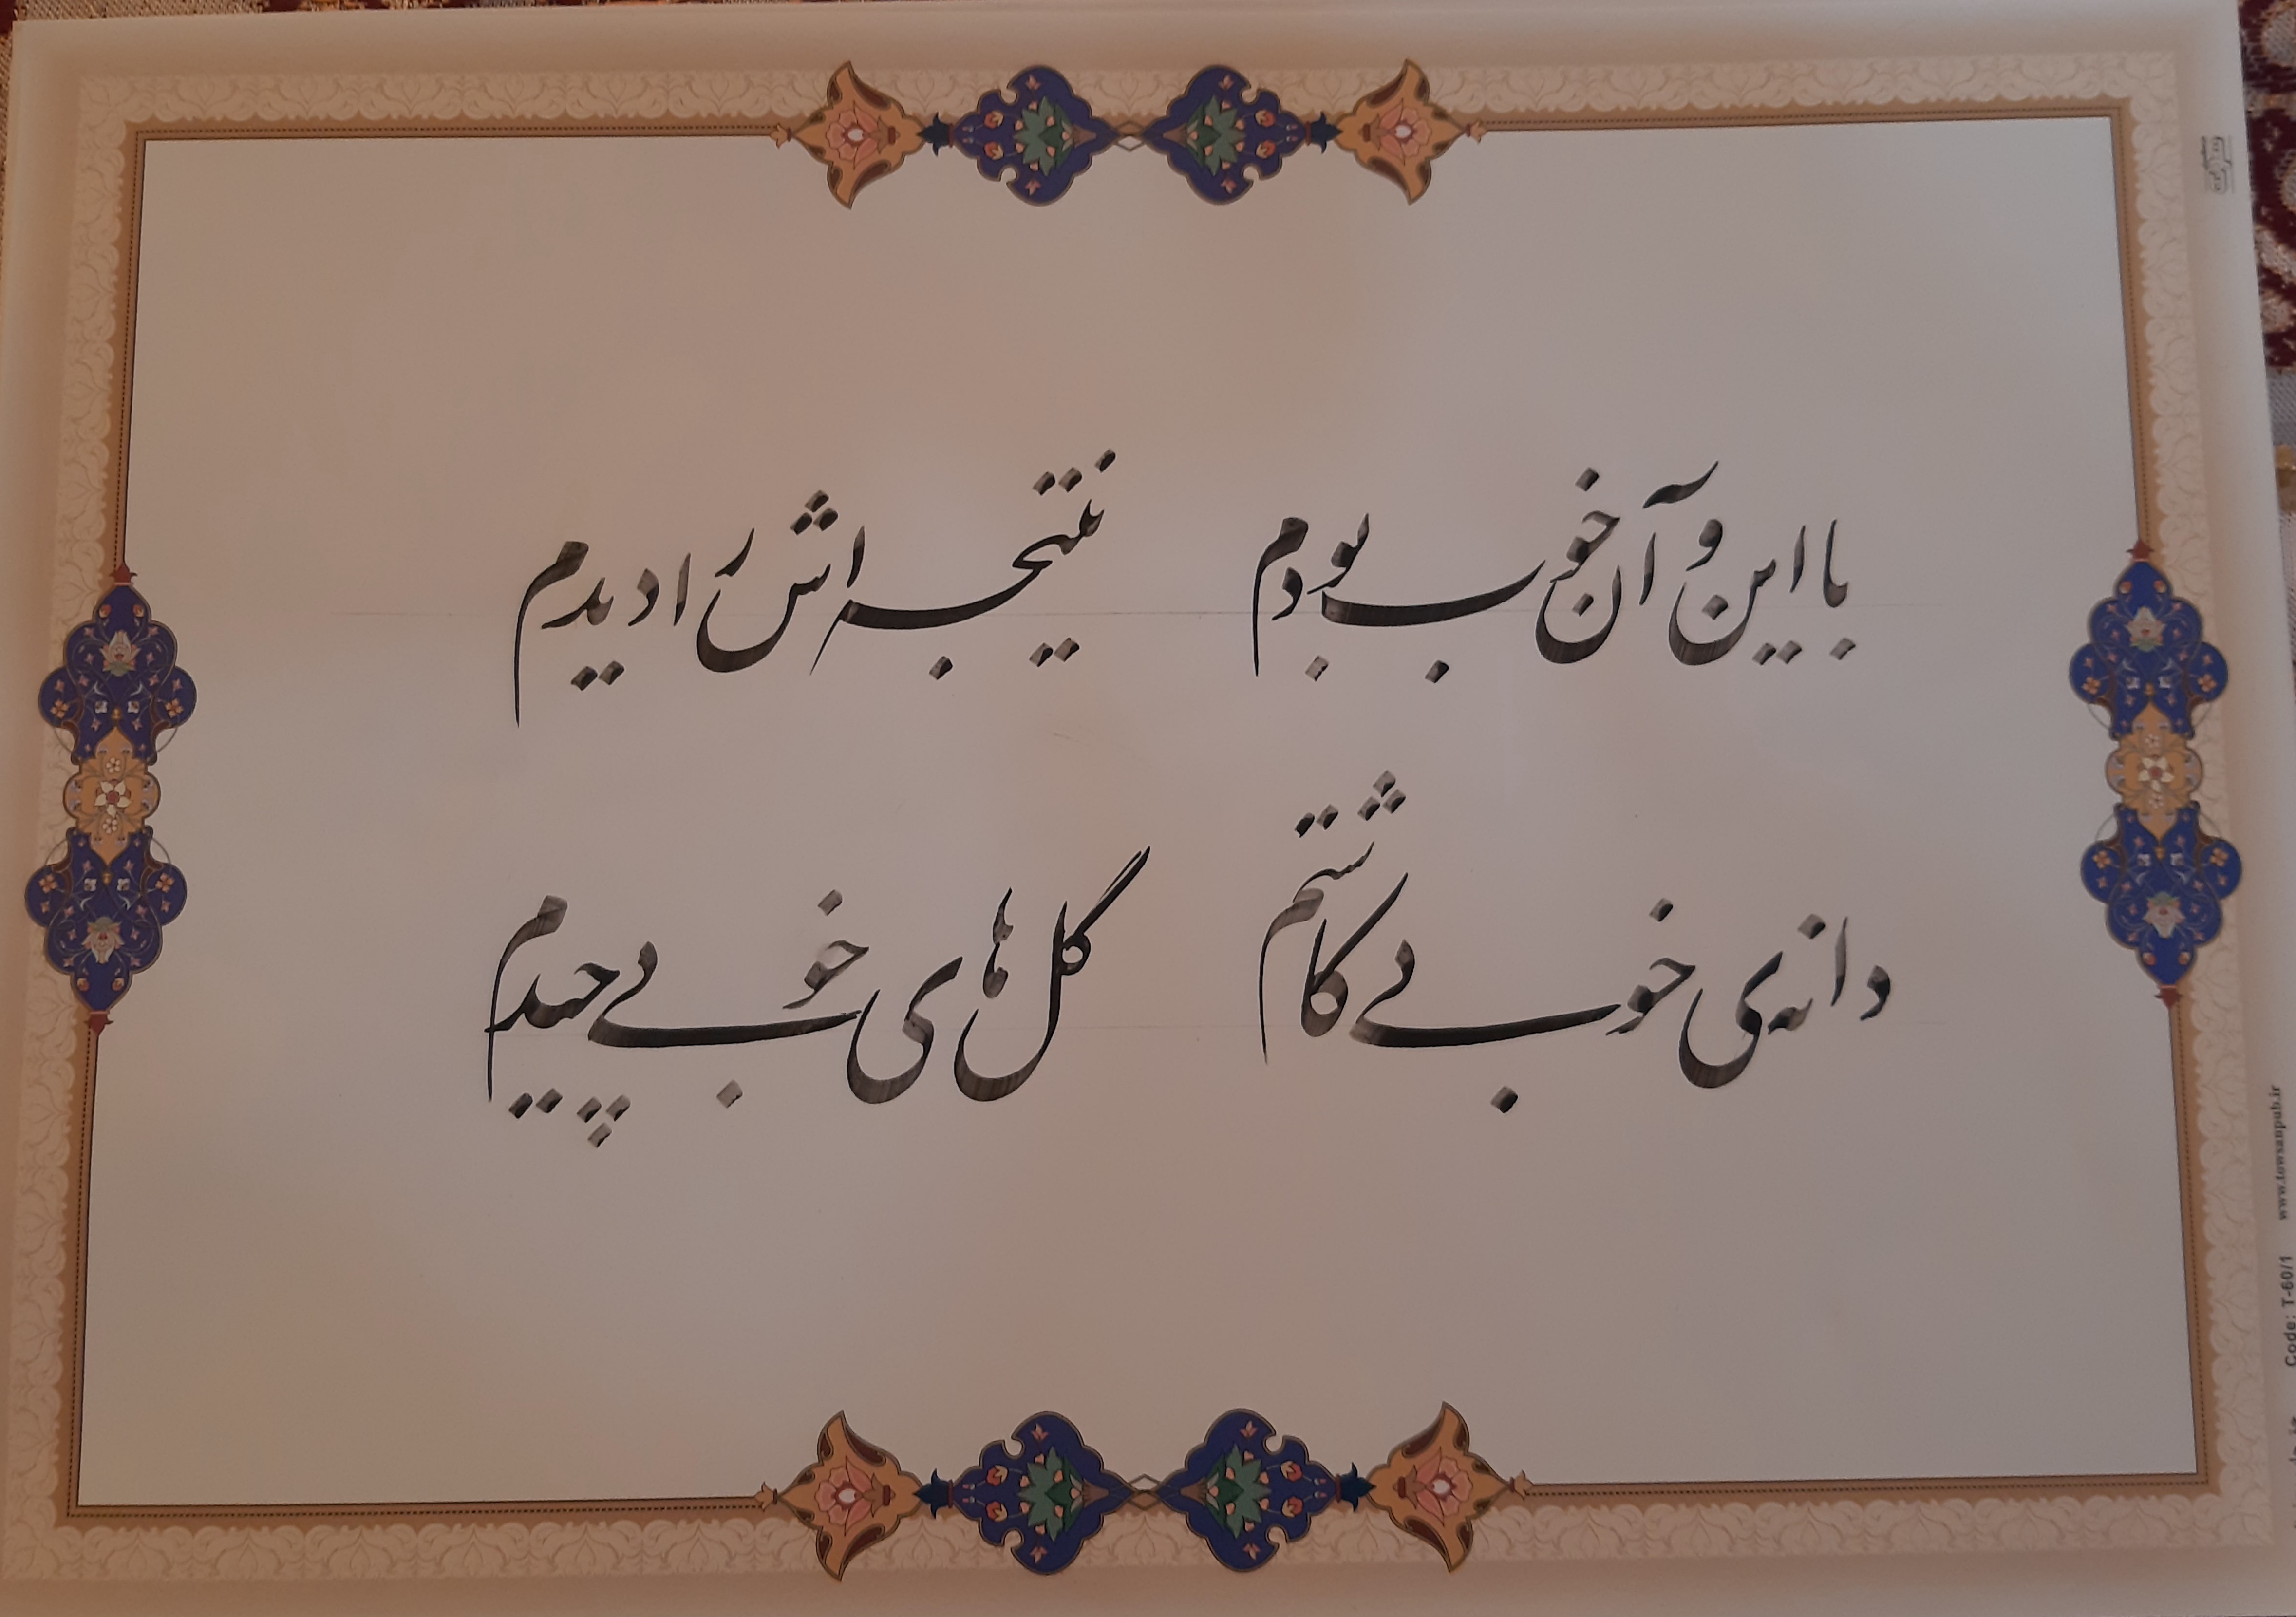 با این و آن خوب بودم نتیجه اش را دیدم
دانه ی خوبی کاشتم گل های خوبی چیدم
www.towsanpub.ir
Code: T-60/1